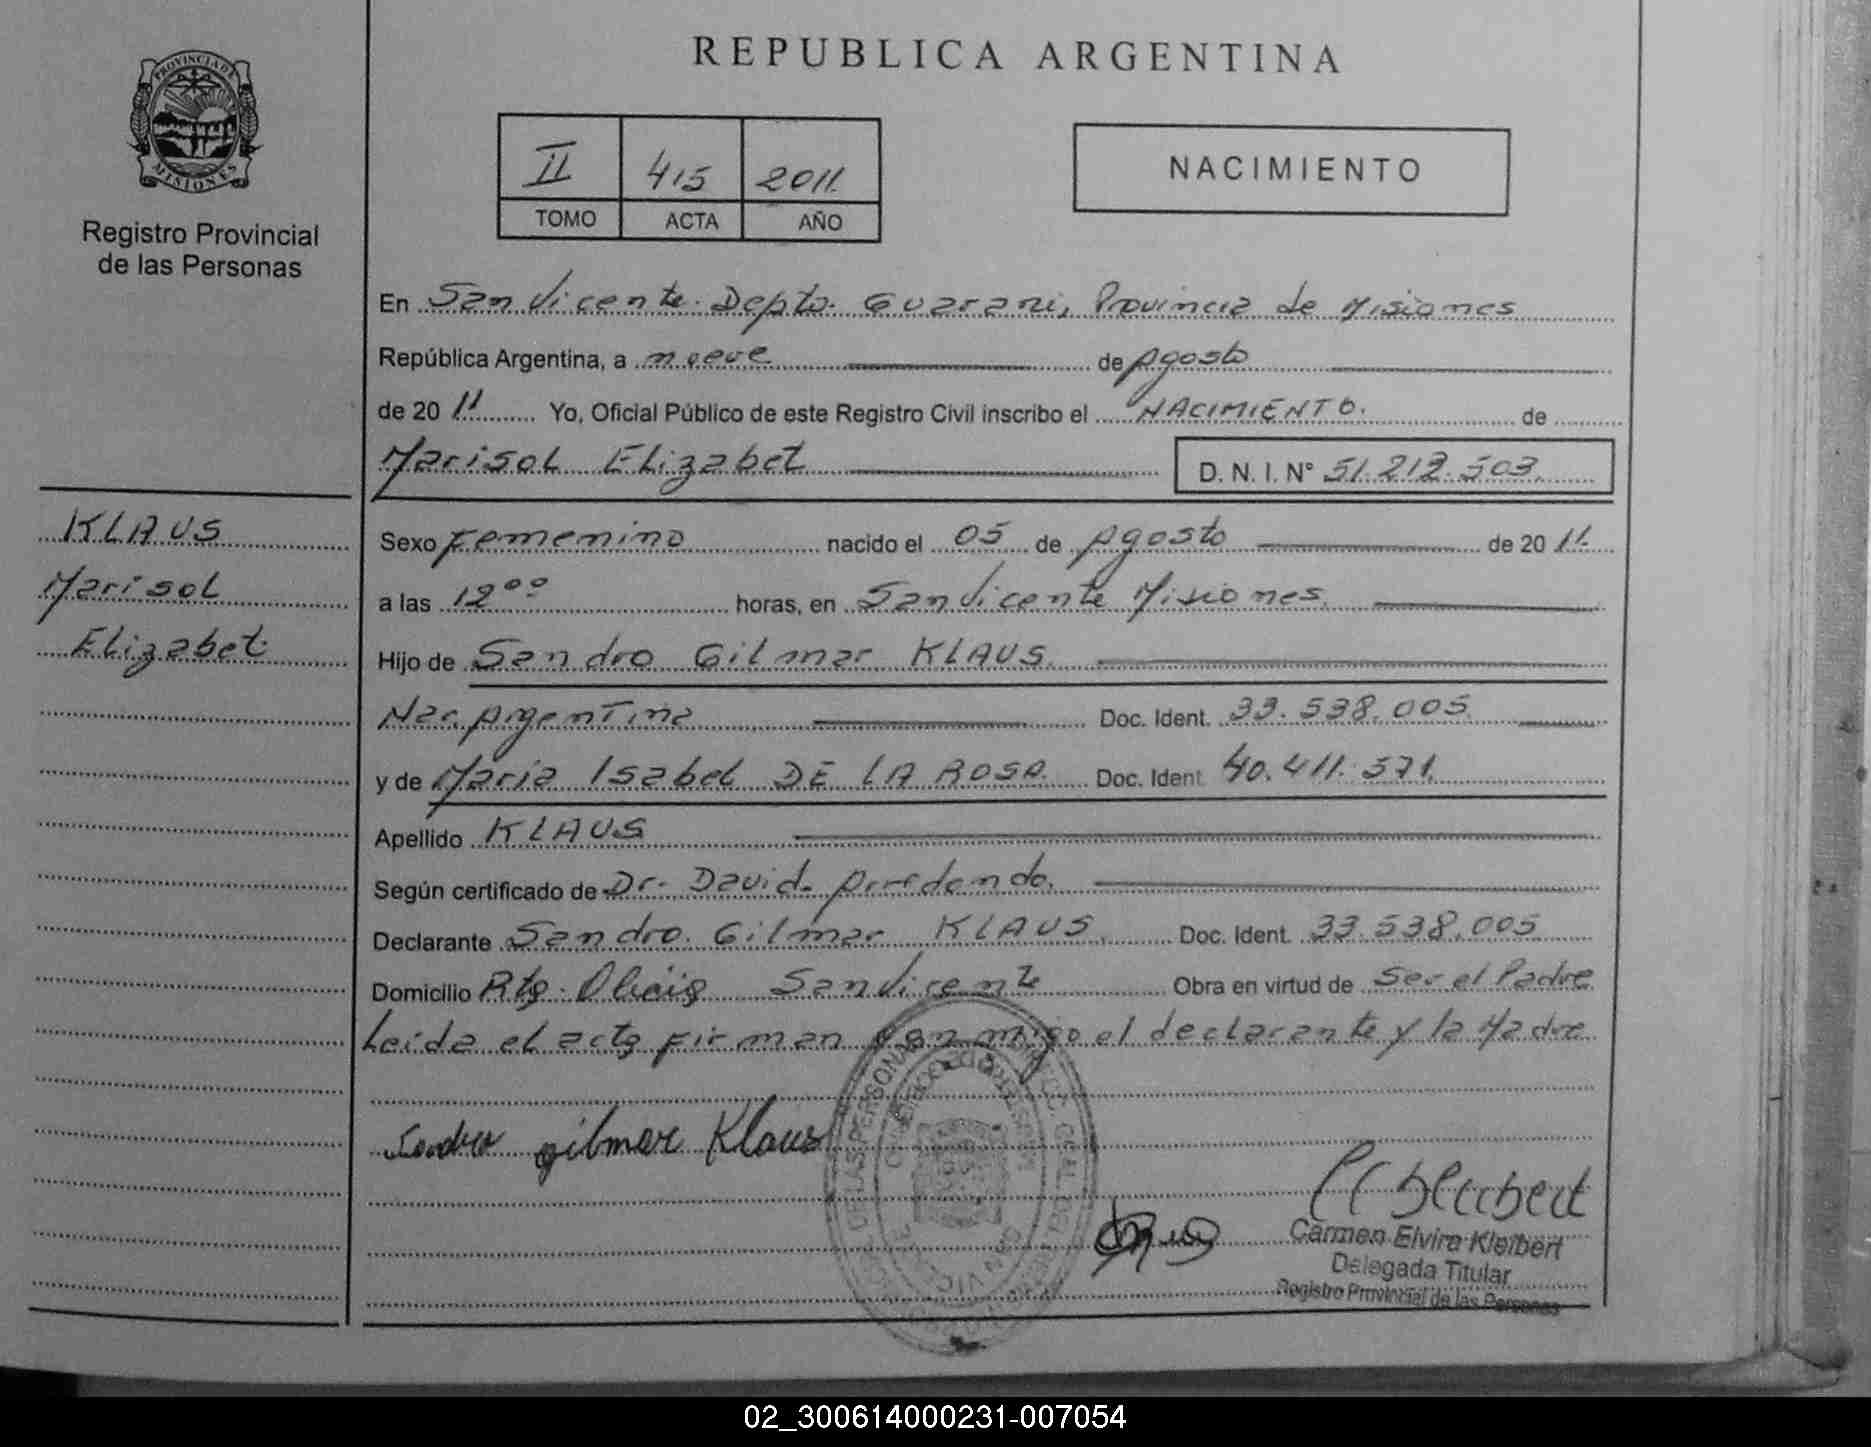 REPUBLICA ARGENTINA
PROVINCIA DE
MISIONES
Registro Provincial
de las Personas
II 415 2011
TOMO ACTA AÑO
NACIMIENTO
En San Vicente Depto. Guarani, Provincia de Misiones
República Argentina, a nueve de Agosto
de 2011 Yo, Oficial Público de este Registro Civil inscribo el NACIMIENTO. de
Marisol Elizabet
D. N. I. N° 51.212.503
KLAUS
Marisol
Elizabet
Sexo Femenino nacido el 05 de Agosto de 2011.
a las 12°° horas, en San Vicente Misiones
Hijo de Sandro Gilmar KLAUS
Nac. Argentina Doc. Ident. 33.538.005
y de Maria Isabel DE LA ROSA Doc. Ident. 40.411.571
Apellido KLAUS
Según certificado de Dr. David
Declarante Sandro Gilmar KLAUS Doc. Ident. 33.538.005
Domicilio San Vicente Obra en virtud de Ser el Padre
Leida el acta firman conmigo el declarante y la Madre
Sandro gilmar Klaus
Carmen Elvira Kleibert
Delegada Titular
Registro Provincial de las Personas
02_300614000231-007054